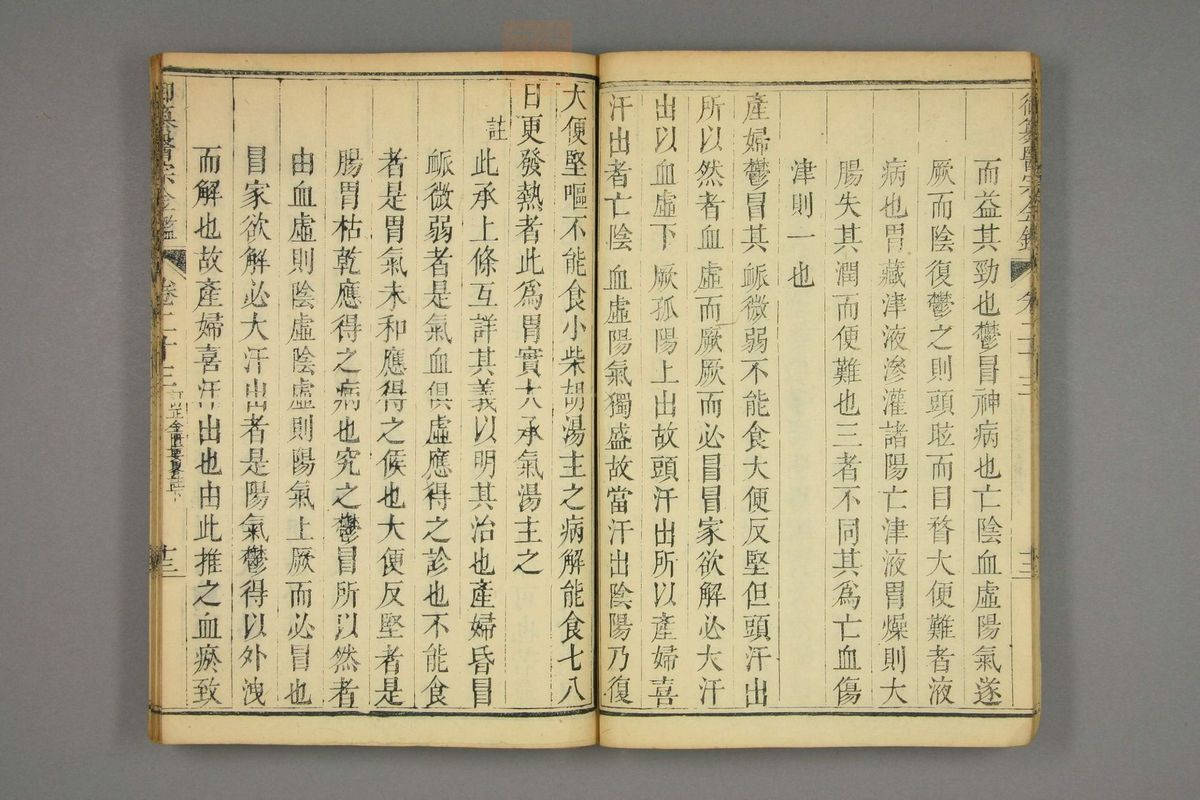 御纂醫宗金鑑 卷二十三 十三
而益其勁也鬱冒神病也亡陰血虛陽氣遂
厥而陰復鬱之則頭眩而目瞀大便難者液
病也胃藏津液滲灌諸陽亡津液胃燥則大
腸失其潤而便難也三者不同其為亡血傷
津則一也
產婦鬱冒其脈微弱不能食大便反堅但頭汗出
所以然者血虛而厥厥而必冒冒家欲解必大汗
出以血虛下厥孤陽上出故頭汗出所以產婦喜
汗出者亡陰血虛陽氣獨盛故當汗出陰陽乃復
大便堅嘔不能食小柴胡湯主之病解能食七八
日更發熱者此為胃實大承氣湯主之
註此承上條互詳其義以明其治也產婦昏冒
脈微弱者是氣血俱虛應得之診也不能食
者是胃氣未和應得之候也大便反堅者是
腸胃枯乾應得之病也究之鬱冒所以然者
由血虛則陰虛陰虛則陽氣上厥而必冒也
冒家欲解必大汗出者是陽氣鬱得以外洩
而解也故產婦喜汗出也由此推之血瘀致
御纂醫宗金鑑 卷二十三 訂正金匱要畧註下 十三